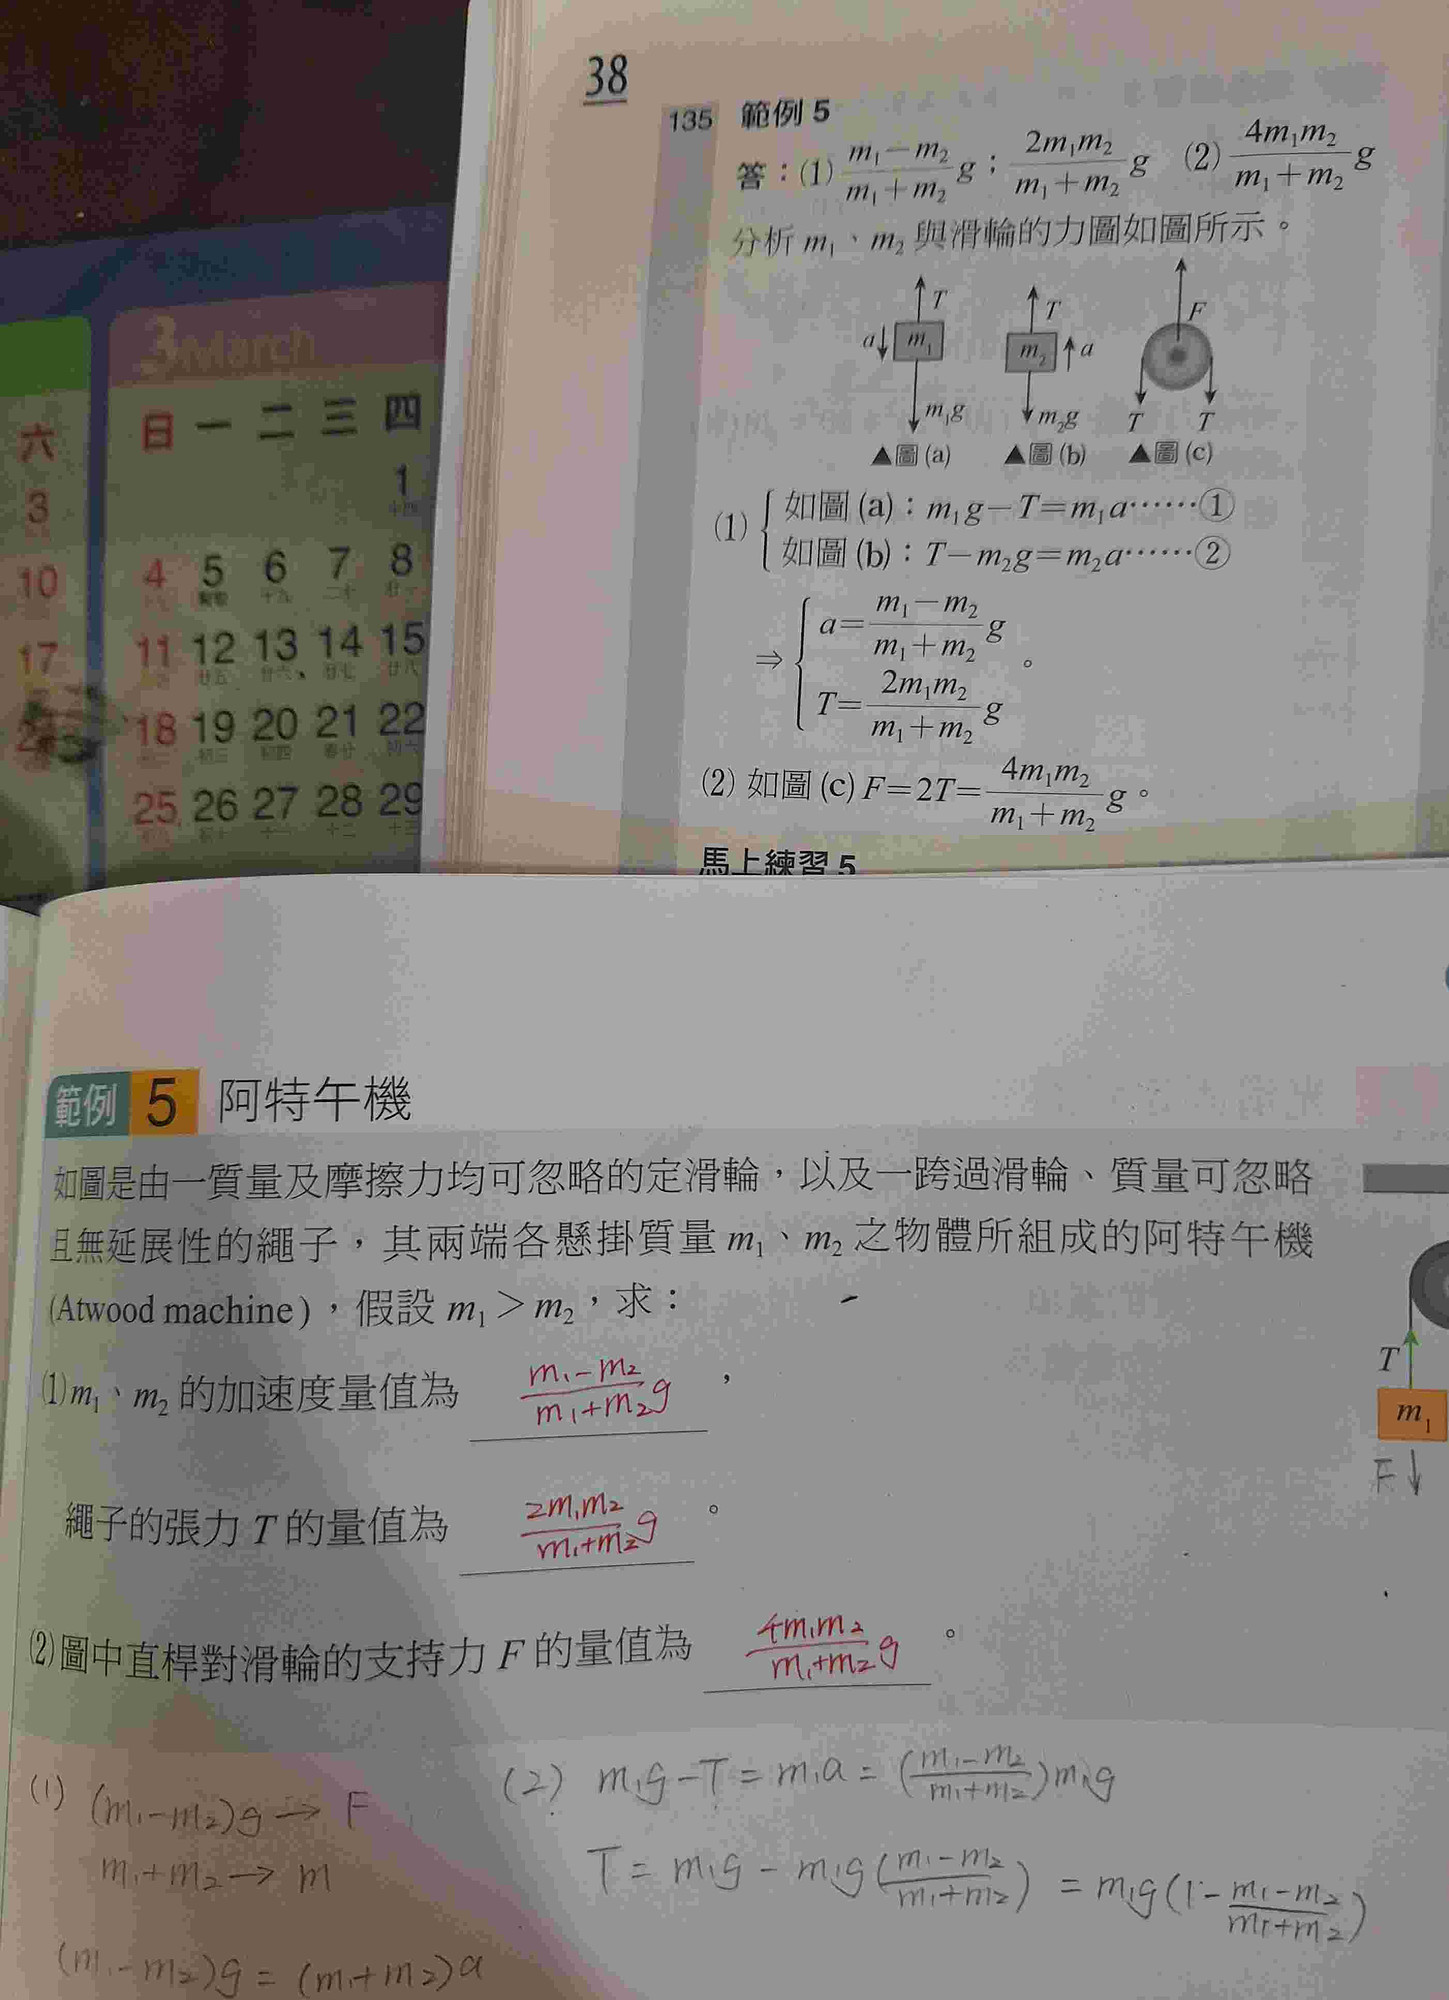 38
135 範例 5
答：(1) \frac{m_1-m_2}{m_1+m_2}g；\frac{2m_1m_2}{m_1+m_2}g (2) \frac{4m_1m_2}{m_1+m_2}g
分析 m_1、m_2 與滑輪的力圖如圖所示。
T T F
a m_1 m_2 a
m_1g m_2g T T
▲圖(a) ▲圖(b) ▲圖(c)
(1) 如圖(a)：m_1g－T＝m_1a……①
如圖(b)：T－m_2g＝m_2a……②
⇒ a=\frac{m_1-m_2}{m_1+m_2}g
T=\frac{2m_1m_2}{m_1+m_2}g。
(2) 如圖(c) F＝2T＝\frac{4m_1m_2}{m_1+m_2}g。
馬上練習 5
3 March
六 日 一 二 三 四
1
3
4 5 6 7 8
10
11 12 13 14 15
17
18 19 20 21 22
25 26 27 28 29
範例 5 阿特午機
如圖是由一質量及摩擦力均可忽略的定滑輪，以及一跨過滑輪、質量可忽略
且無延展性的繩子，其兩端各懸掛質量 m_1、m_2 之物體所組成的阿特午機
(Atwood machine)，假設 m_1＞m_2，求：
(1) m_1、m_2 的加速度量值為 \frac{m_1-m_2}{m_1+m_2}g，
繩子的張力 T 的量值為 \frac{2m_1m_2}{m_1+m_2}g。
(2) 圖中直桿對滑輪的支持力 F 的量值為 \frac{4m_1m_2}{m_1+m_2}g。
T
m_1
F↓
(1) (m_1-m_2)g → F
m_1+m_2 → m
(m_1-m_2)g = (m_1+m_2)a
(2) m_1g-T = m_1a = (\frac{m_1-m_2}{m_1+m_2})m_1g
T = m_1g - m_1g(\frac{m_1-m_2}{m_1+m_2}) = m_1g(1-\frac{m_1-m_2}{m_1+m_2})